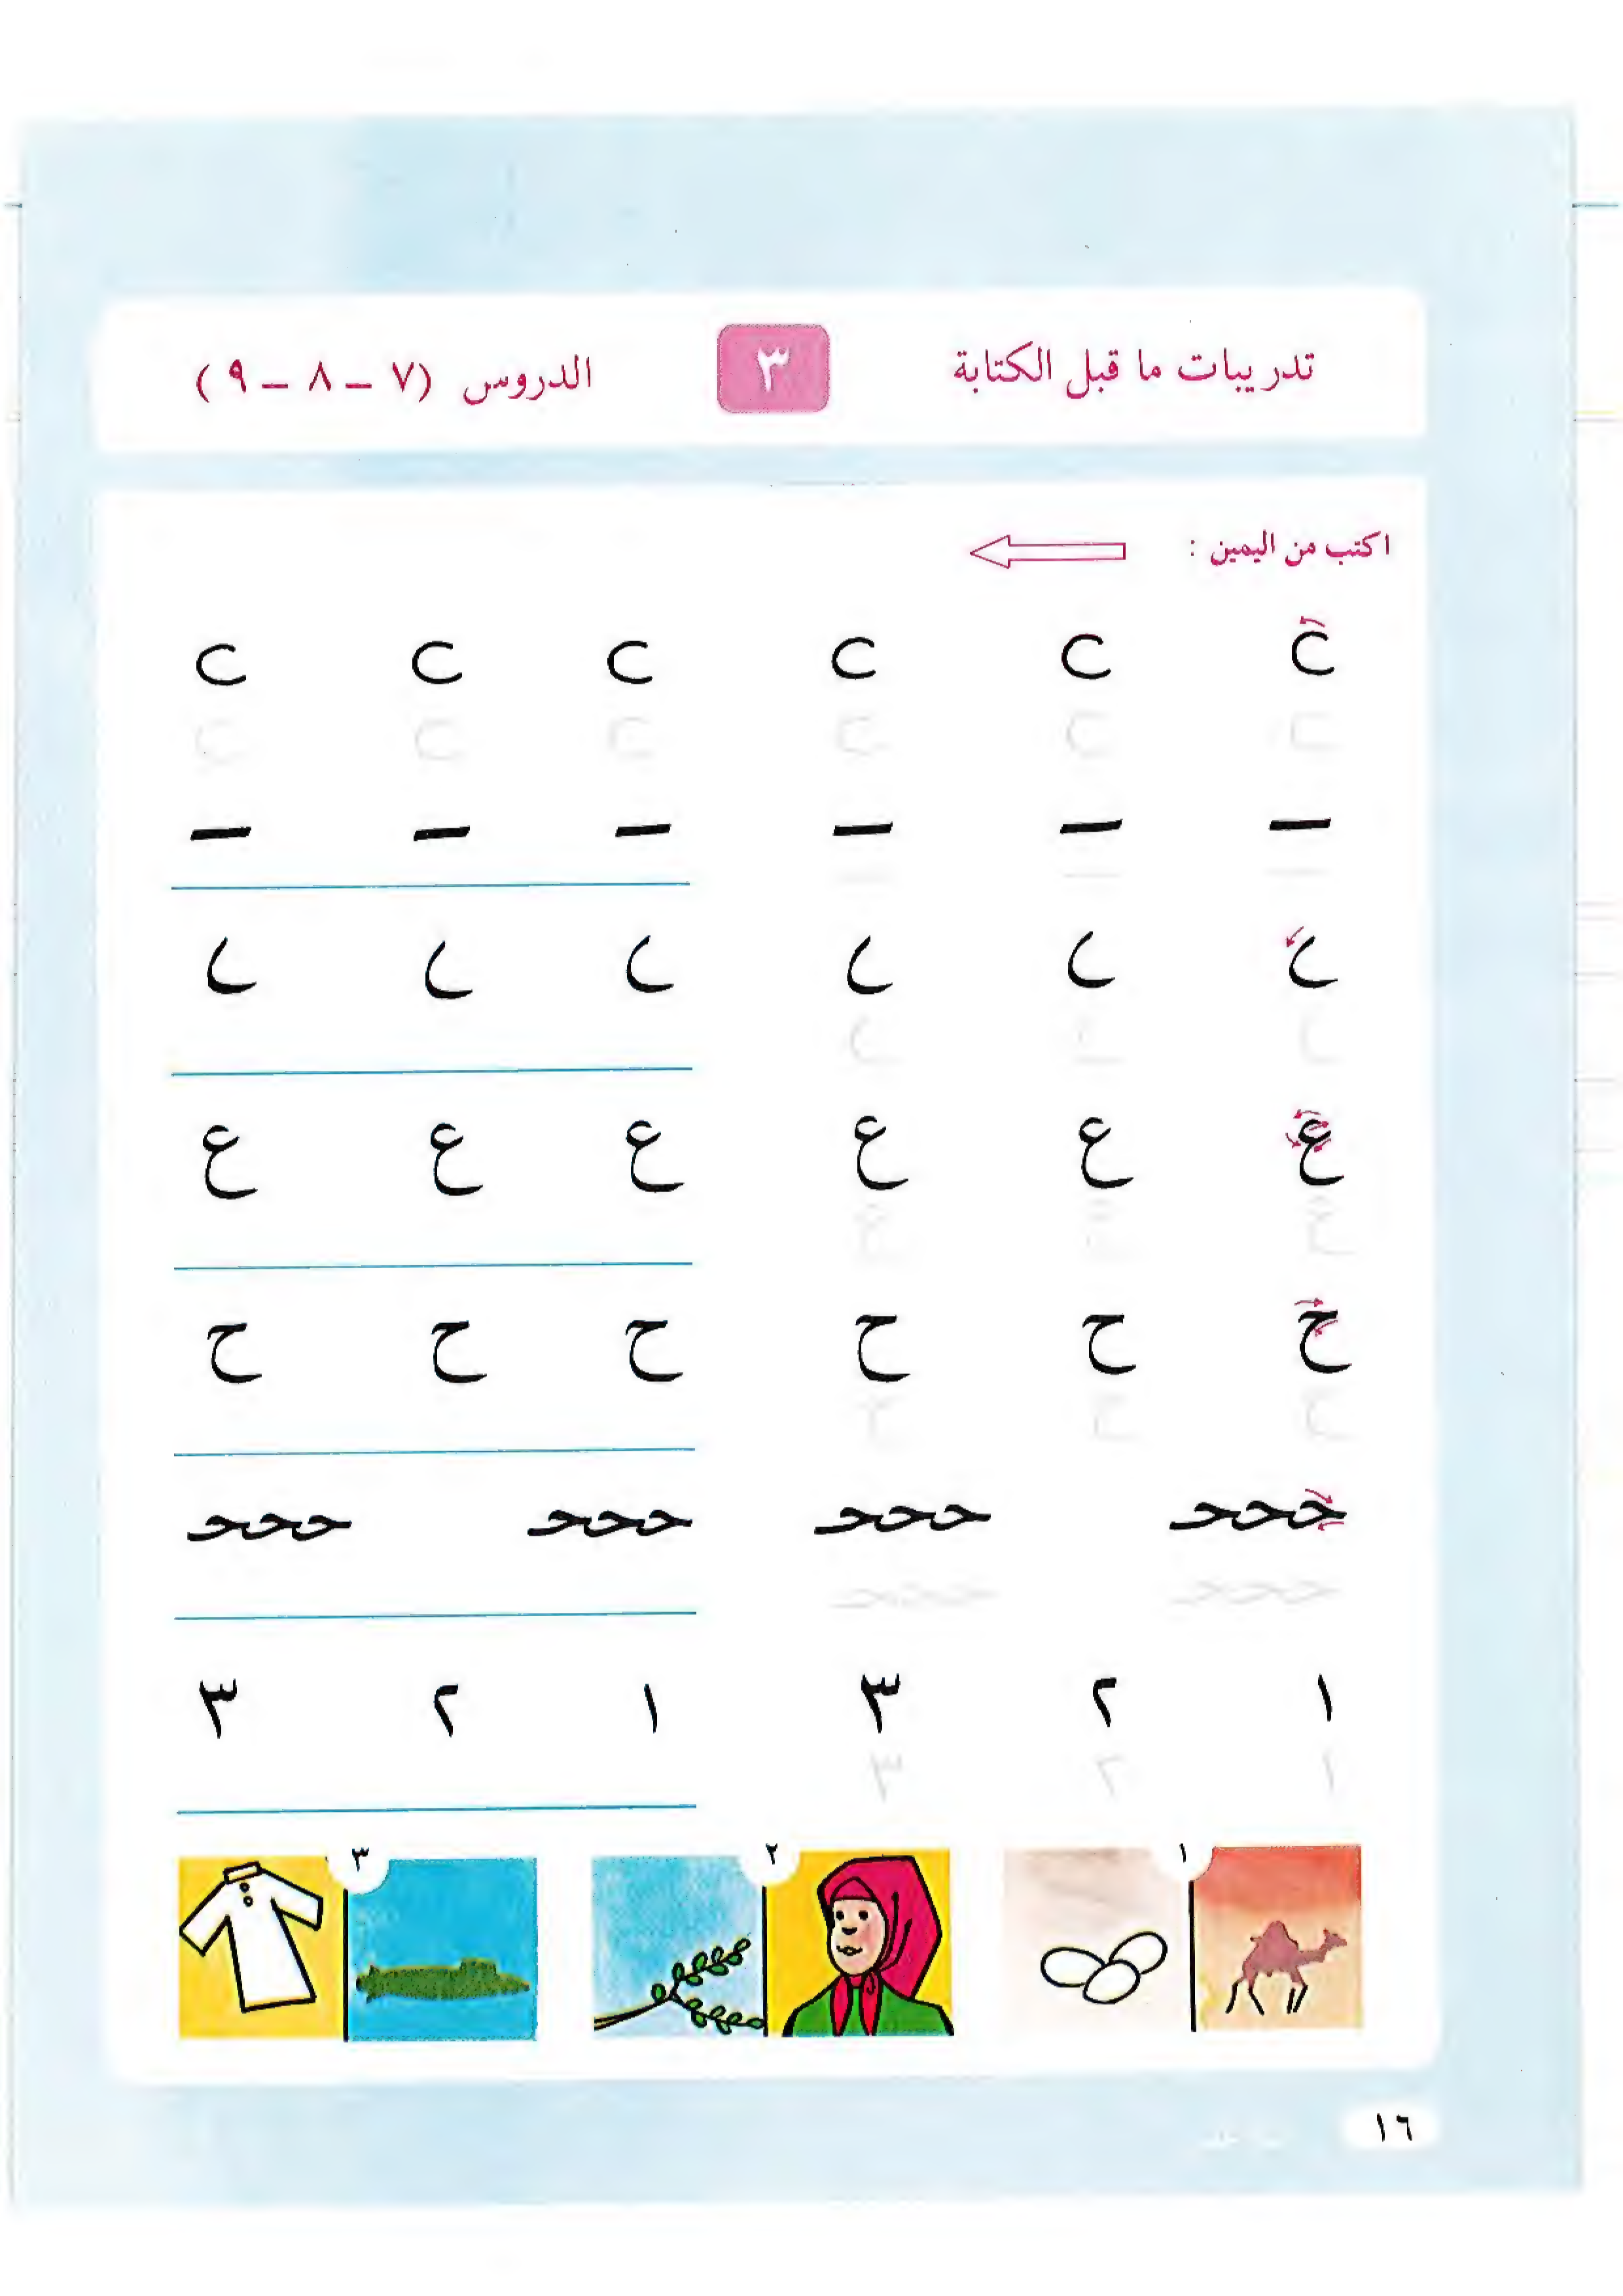 تدريبات ما قبل الكتابة ٣ الدروس (٧ – ٨ – ٩)
اكتب من اليمين :
ع ع ع ع ع ع
ح ح ح ح ح ح
ححد ححد ححد ححد
١ ٢ ٣ ١ ٢ ٣
١ ٢ ٣
١ ٢ ٣
١٦